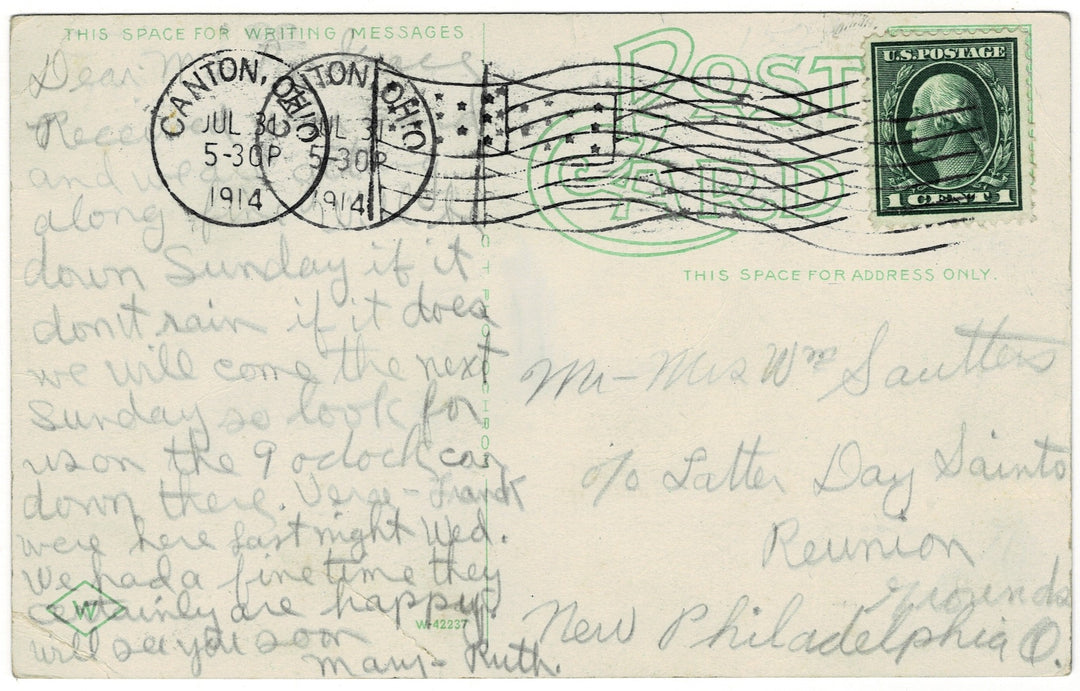 THIS SPACE FOR WRITING MESSAGES
Dear
and we are
along fine
down Sunday if it
don't rain if it does
we will come the next
Sunday so look for
us on the 9 o'clock car
down there. Verge - Frank
were here last night Wed.
We had a fine time they
certainly are happy.
will see you soon
Mary - Ruth.
W
W-42237
CANTON, OHIO
JUL 31
5-30P
1914
CANTON, OHIO
JUL 31
5-30P
1914
POST
CARD
U.S. POSTAGE
1 CENT 1
THIS SPACE FOR ADDRESS ONLY.
Mr - Mrs Wm Sautters
c/o Latter Day Saints
Reunion
Grounds
New Philadelphia O.